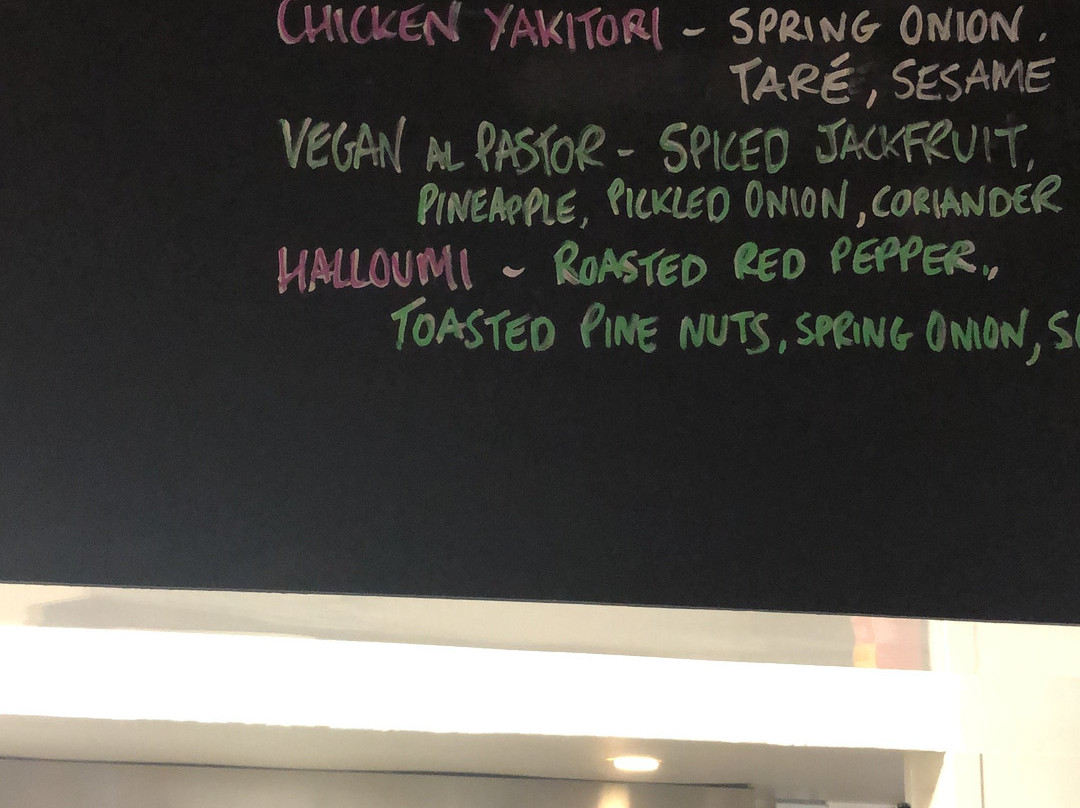 CHICKEN YAKITORI - SPRING ONION.
TARÉ, SESAME
VEGAN AL PASTOR - SPICED JACKFRUIT,
PINEAPPLE, PICKLED ONION, CORIANDER
HALLOUMI - ROASTED RED PEPPER.,
TOASTED PINE NUTS, SPRING ONION,